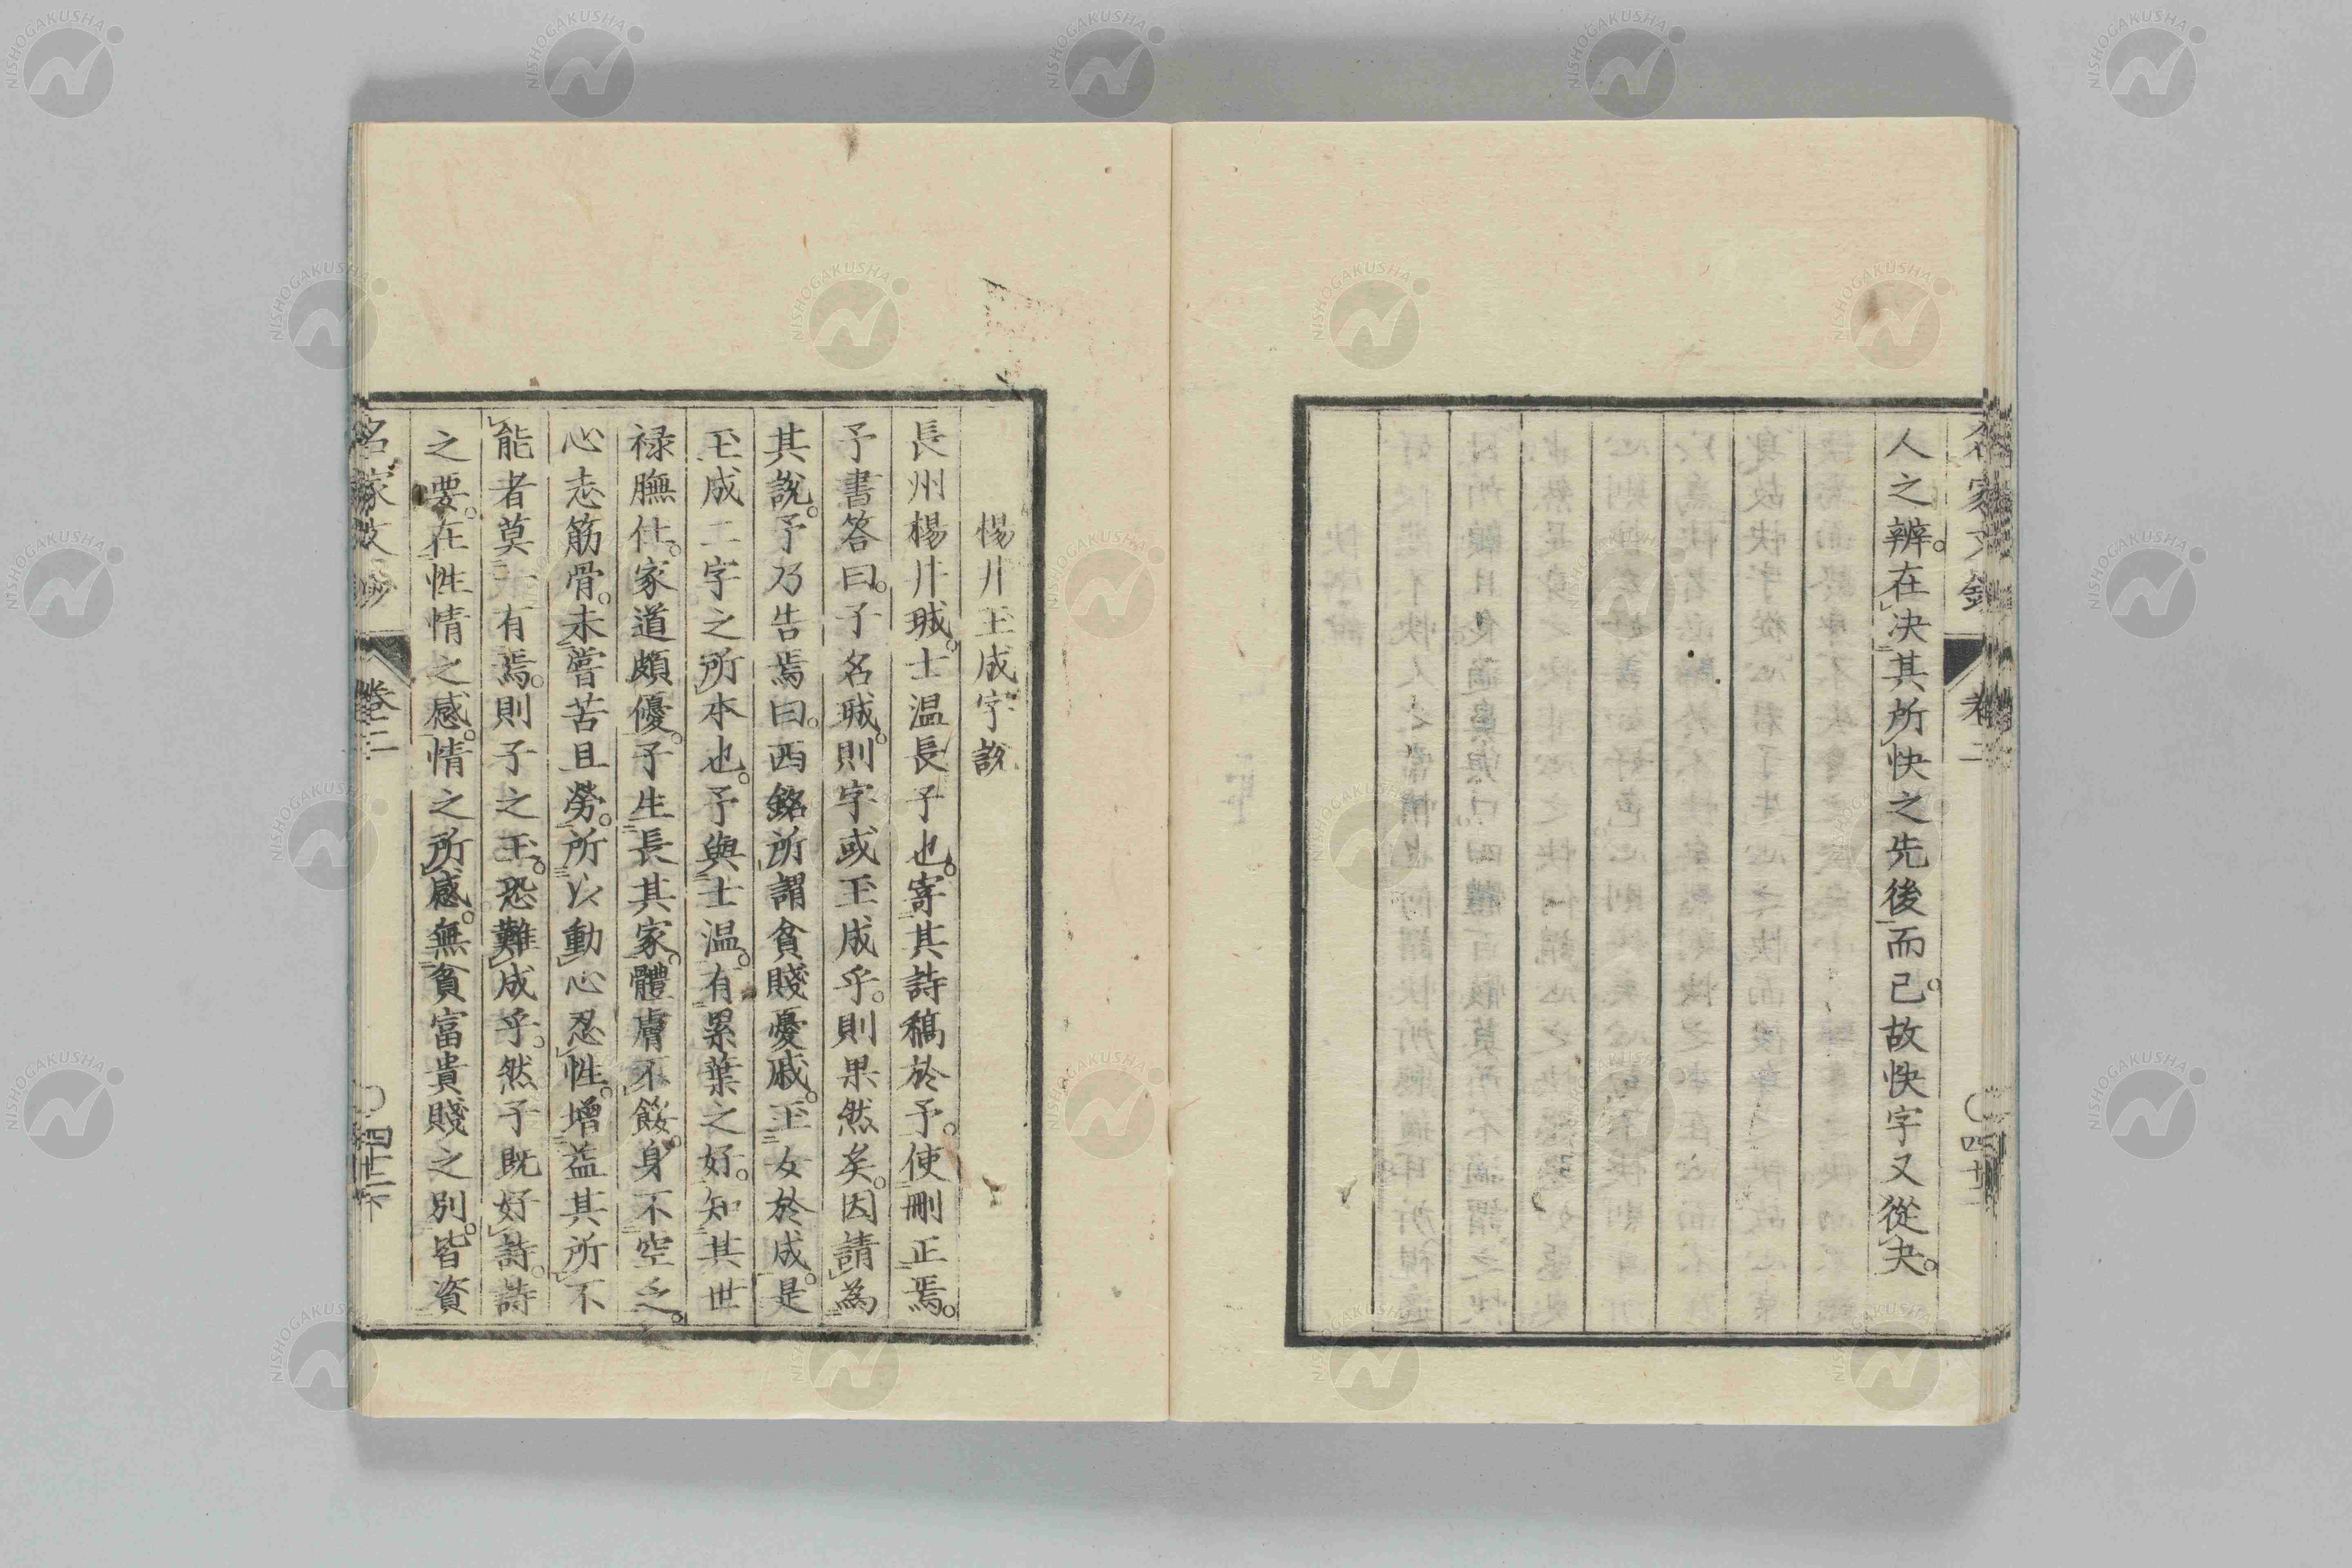 人之辨。在決其所快之先後而已。故快字又從夬。
名家文鈔
卷二
楊井玉成字說
長州楊井珹。士温長子也。寄其詩稿於予。使刪正焉。
予書答曰。子名珹。則字或玉成乎。則果然矣。因請為
其說。予乃告焉曰。西銘所謂貧賤憂戚。玉女於成。是
玉成二字之所本也。予與士温。有累葉之好。知其世
禄膴仕。家道頗優。子生長其家。體膚不餒。身不空乏。
心志筋骨。未嘗苦且勞。所以動心忍性。增益其所不
能者莫有焉。則子之玉。恐難成乎。然子既好詩。詩
之要。在性情之感。情之所感。無貧富貴賤之別。皆資
名家文鈔
卷二
NISHOGAKUSHA